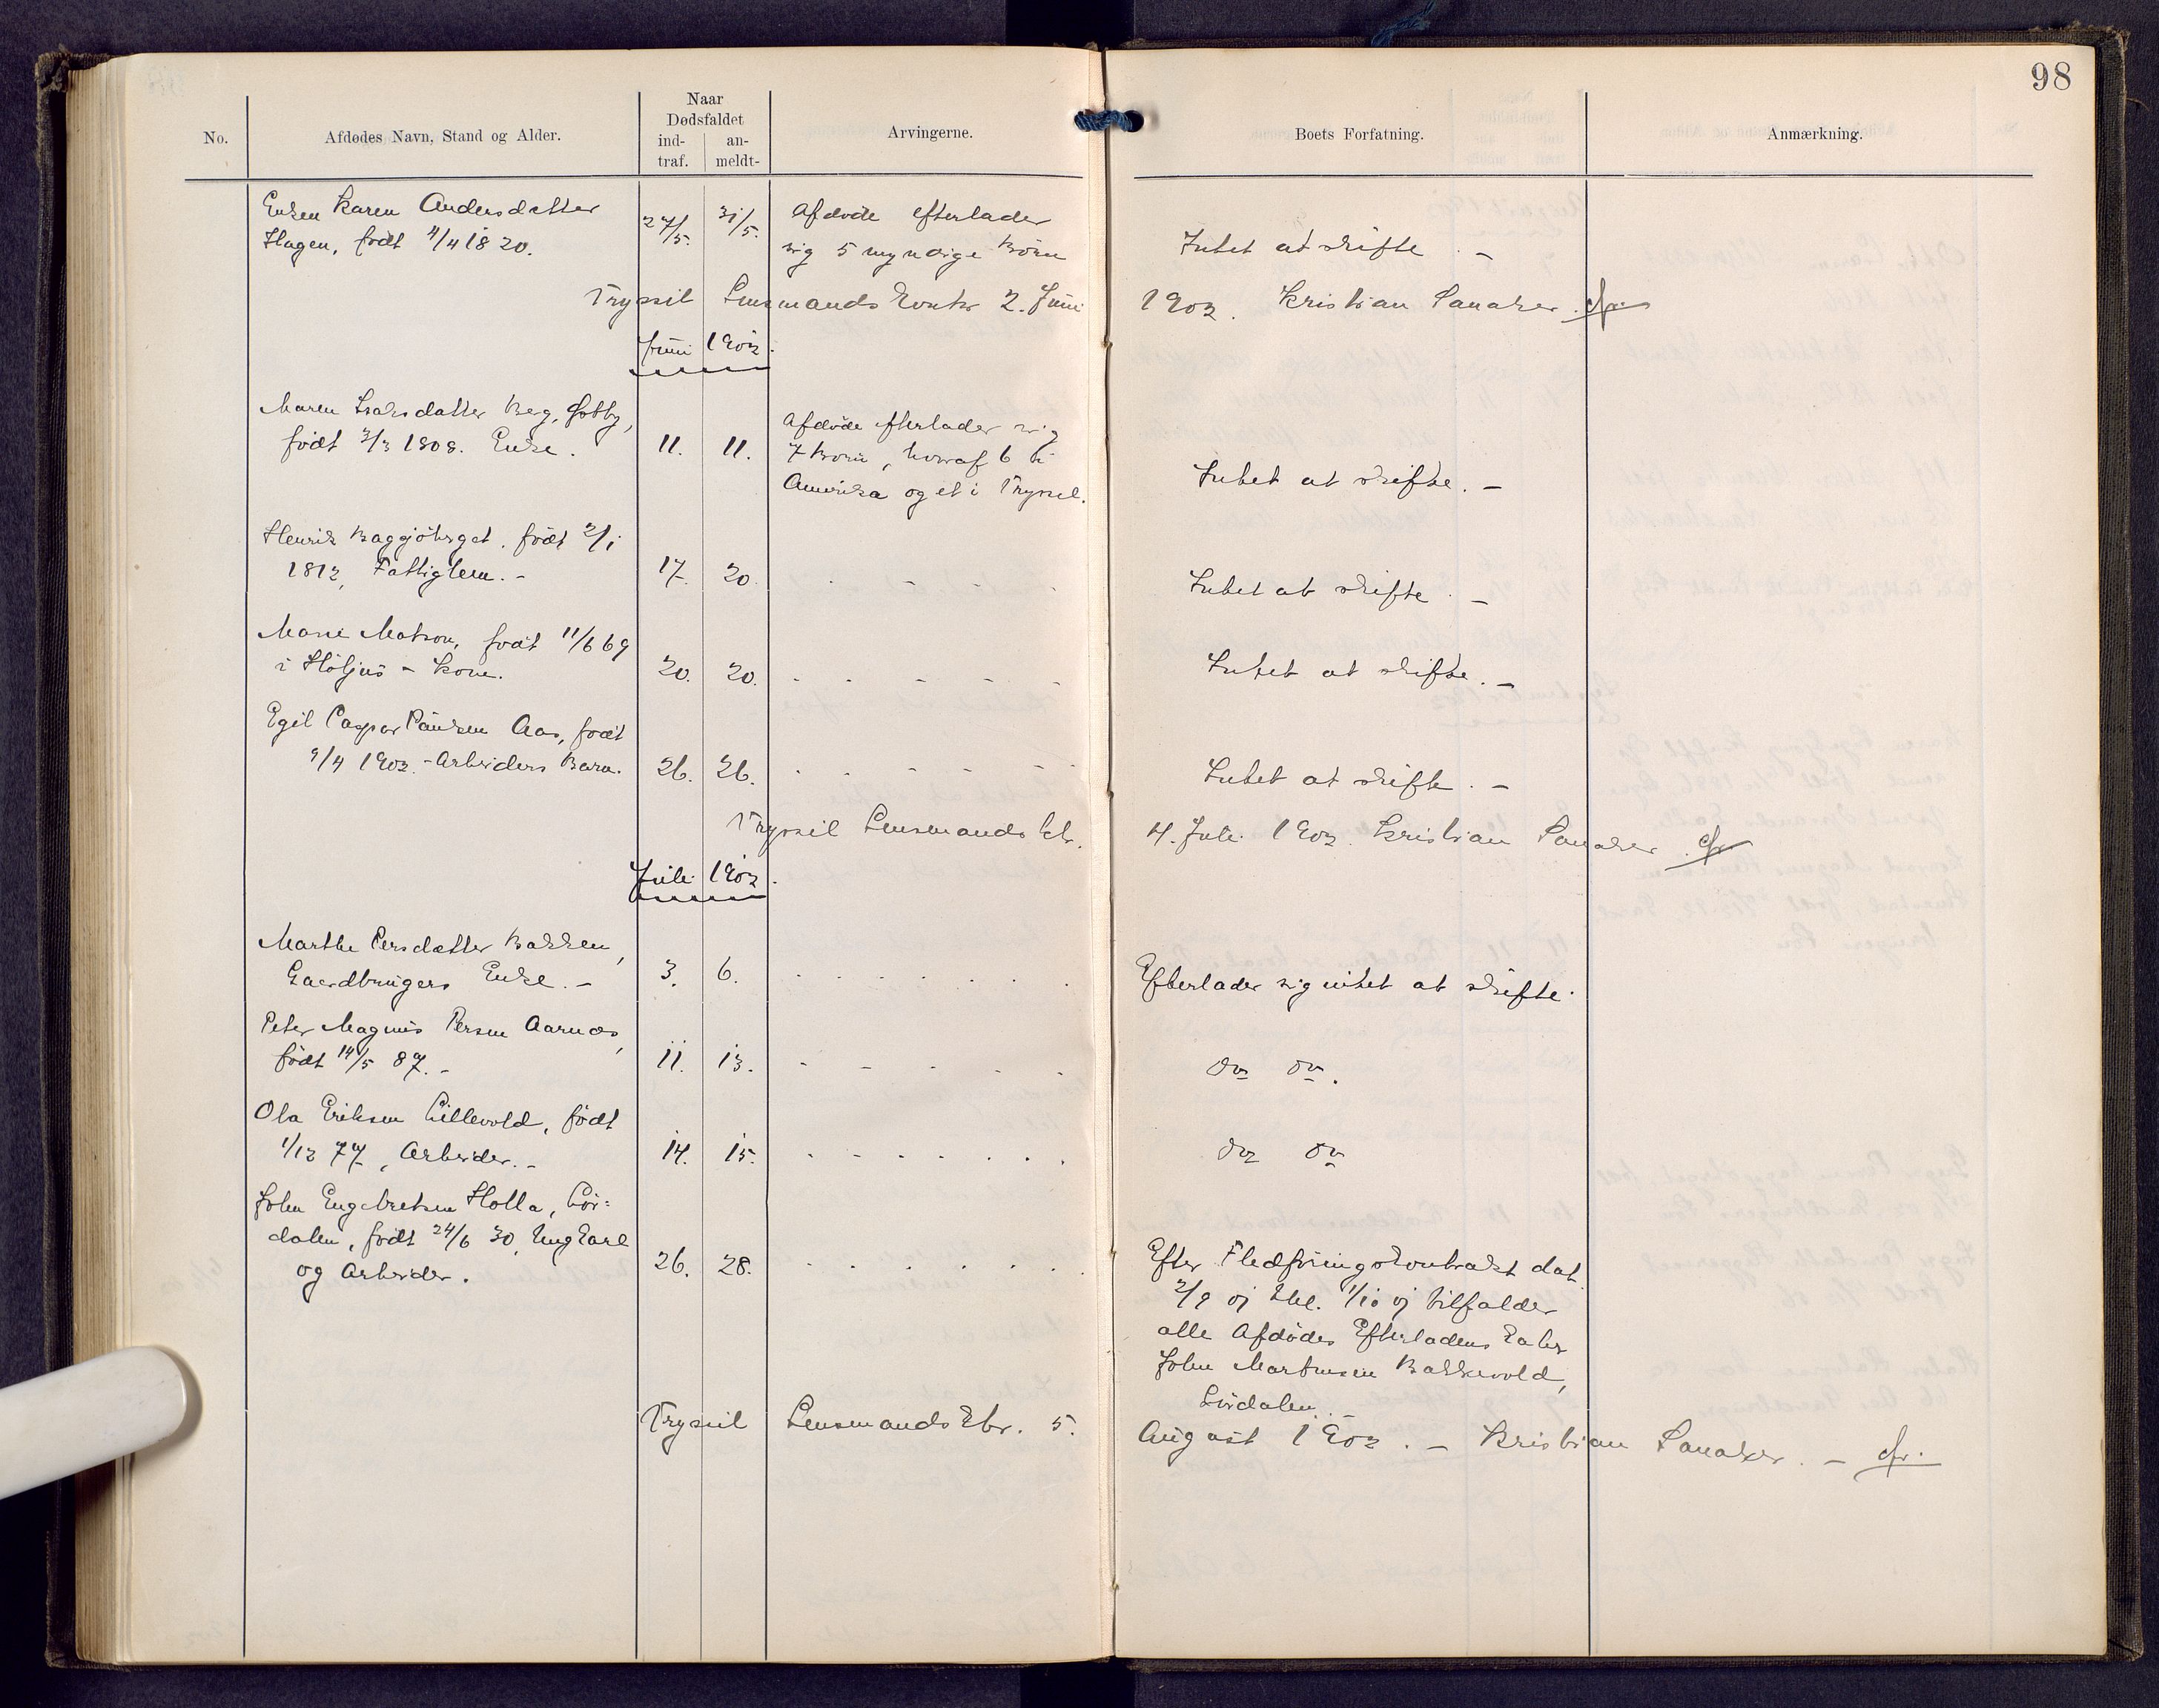 98
No.
Afdødes Navn, Stand og Alder.
Naar
Dødsfaldet
ind-
traf.
an-
meldt-
Arvingerne.
Boets Forfatning.
Anmærkning.
Enken Karen Andersdatter
Hagen, født 4/4 1820.
27/5. 31/5.
Afdøde efterlader
sig 5 myndige Börn
Intet at skifte. –
Trysil Lensmands Kontr 2. Juni 1902. Kristian Sanaker.
Juni 1902.
Maren Isaksdatter Berg,
født 3/3 1808. Enke.
11. 11.
Afdöde efterlader sig
7 Börn, hvoraf 6 i
Amerika og et i Trysil.
Intet at skifte. –
Henrik Baggjöberget. født 2/1
1812, Fattiglem. –
17. 20.
Intet at skifte. –
Marie Matson, født 11/6 69
i Höljus – Kone.
20. 20.
Intet at skifte. –
Egil Caspar Paulsen Aas, født
9/4 1902. – Arbeiders Barn.
26. 26.
Intet at skifte. –
Trysil Lensmands ktr. 4. Juli 1902. Kristian Sanaker.
Juli 1902.
Marthe Persdatter Bakken,
Gaardbrugers Enke. –
3. 6.
Efterlader sig intet at skifte.
Peter Magnus Persen Aarnæs,
födt 14/5 87. –
11. 13.
do do.
Ola Eriksen Lillevold, födt
1/12 77, Arbeider. –
14. 15.
do do
John Engebretsen Holla, Lör=
dalen, født 24/6 30, Ungkarl
og Arbeider.
26. 28.
Efter Fledföringskontrakt dat.
2/9 01 1/10 01 tilfalder
alle Afdödes Efterladenskaber
John Martinsen Bakkevold,
Lördalen. –
Trysil Lensmands Ktr. 5. August 1902. – Kristian Sanaker. –